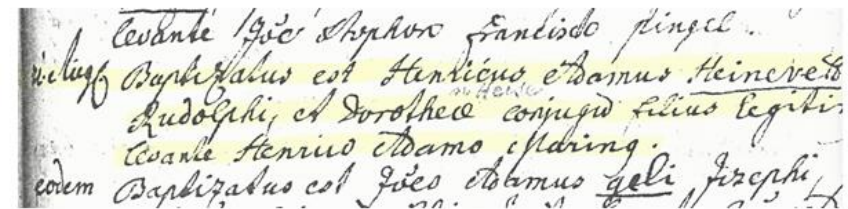 levante Jŏĕ Stophore Francisco pingel.
Baptizatus est Henricus Adamus Heinevett
Rudolphi, et Dorotheæ conjugū filius legiti
levante Henrico Adamo Maring.
eodem Baptizatus est Jŏĕs Adamus geli Jozephi,